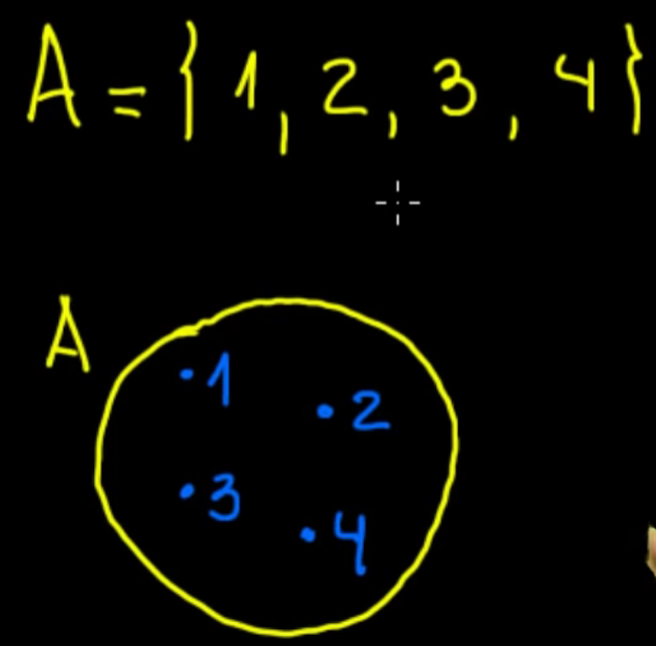 A = {1, 2, 3, 4}
A
1
2
3
4